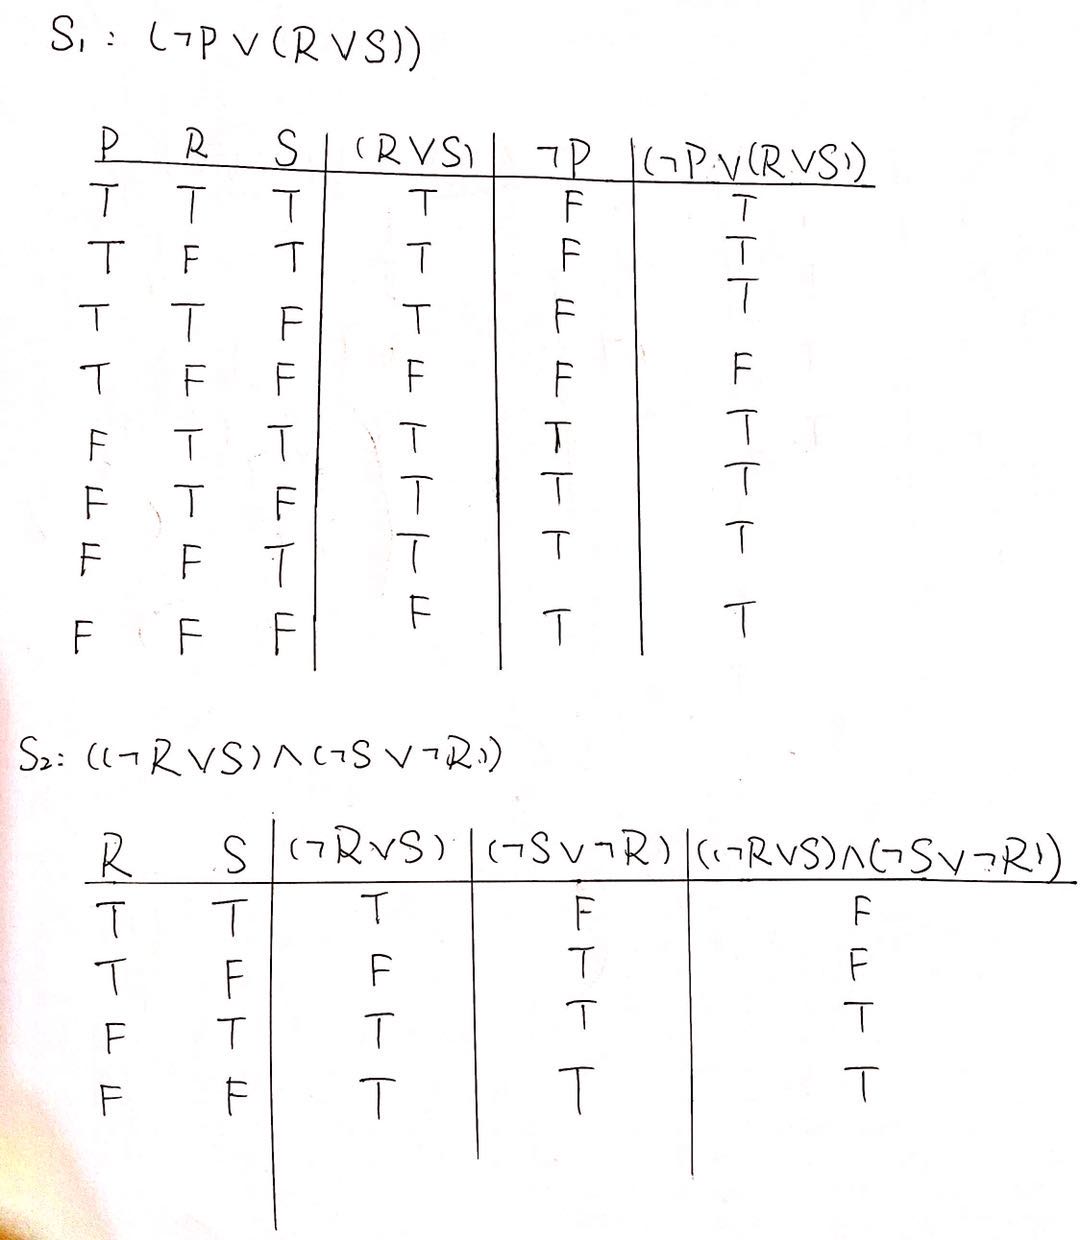 S₁ : (¬P ∨ (R ∨ S))
P R S (R ∨ S) ¬P (¬P ∨ (R ∨ S))
T T T T F T
T F T T F T
T T F T F T
T F F F F F
F T T T T T
F T F T T T
F F T T T T
F F F F T T
S₂: ((¬R ∨ S) ∧ (¬S ∨ ¬R))
R S (¬R ∨ S) (¬S ∨ ¬R) ((¬R ∨ S) ∧ (¬S ∨ ¬R))
T T T F F
T F F T F
F T T T T
F F T T T